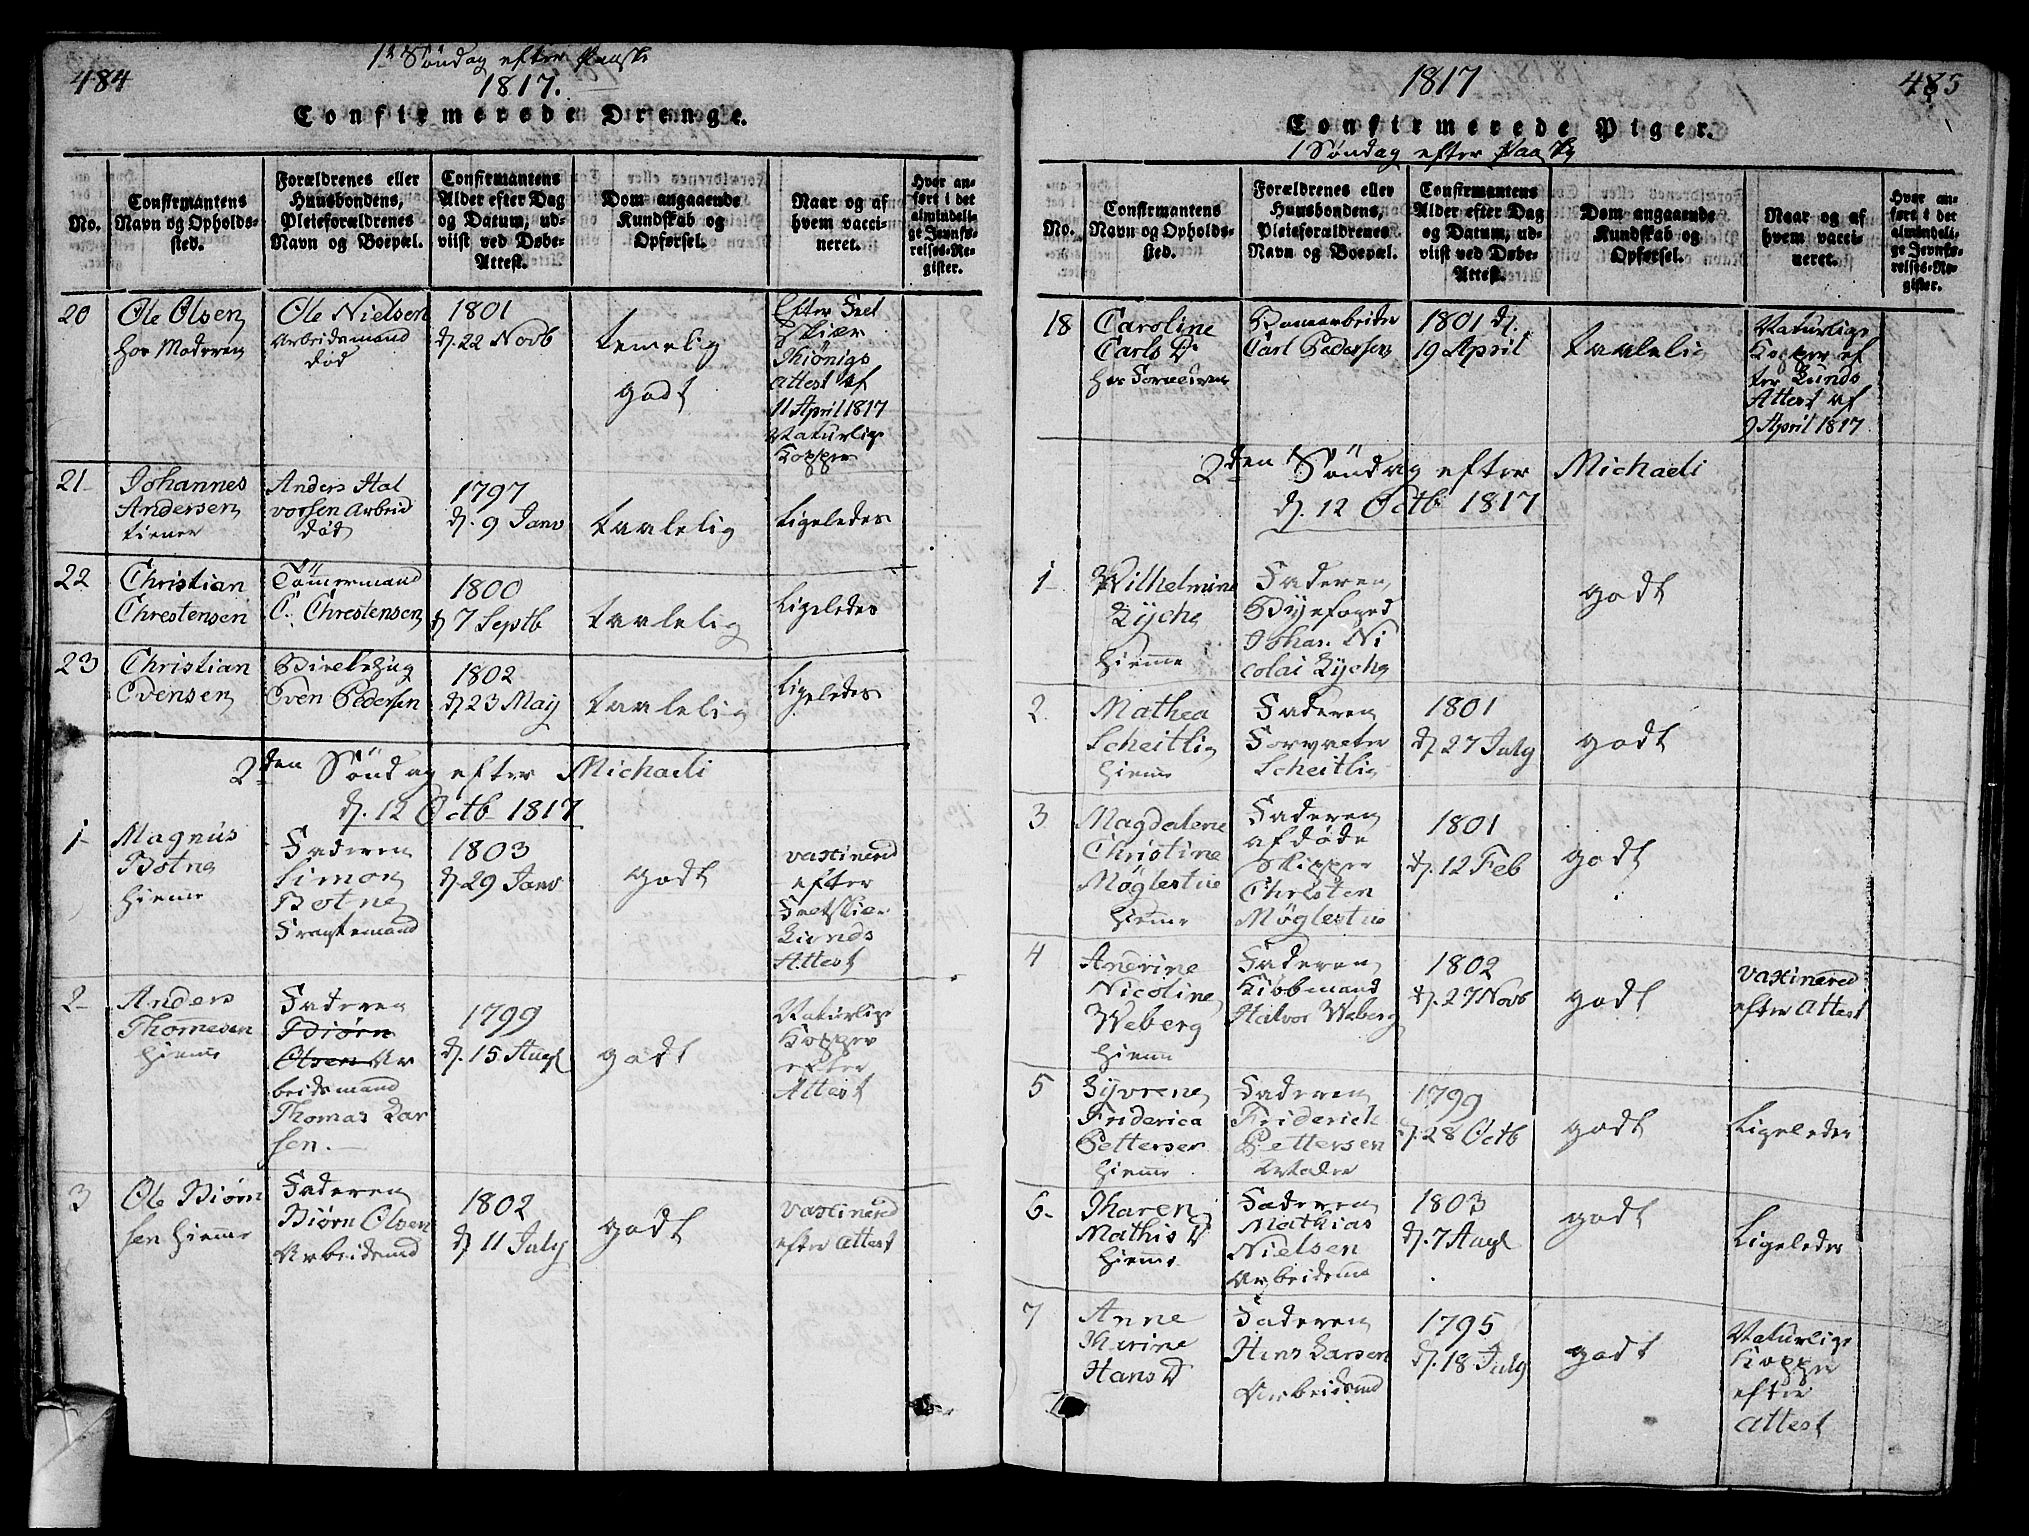 484
1ste Søndag efter Paaske
1817.
Confirmerede Drenge.
No.
Confirmantens
Navn og Opholds-
sted.
Forældrenes eller
Huusbondens,
Pleieforældrenes
Navn og Boepæl.
Confirmantens
Alder efter Dag
og Datum, ud-
viist ved Døbe-
Attest.
Dom angaaende
Kundskab og
Opførsel.
Naar og af
hvem vacci-
neret.
Hvor an-
ført i det
almindeli-
ge Jevnfø-
relses-Re-
gister.
20
Ole Olsen
hos Moderen
Ole Nielsen
Arbeidsmand
død
1801
d. 22 Novb
temelig
godt
Efter
Attest af
11 April 1817
Naturlige
Kopper
21
Johannes
Andersen
tiener
Anders Hal
vorsen Arbeid
død
1797
d. 9 Janv
taalelig
Ligeledes
22
Christian
Chrestensen
Tømmermand
C. Chrestensen
1800
d. 7 Septb
taalelig
Ligeledes
23
Christian
Evensen
Even Pedersen
1802
d. 23 May
taalelig
Ligeledes
2den Søndag efter Michaeli
d. 12 Octb 1817
1
Magnus
Botne
hiemme
Faderen
Simon
Botne
Fragtemand
1803
d. 29 Janv
godt
vaxinered
efter
Lunds
Attest
2
Anders
Thommesen
hiemme
Faderen
Biørn
Olsen Ar
beidsmand
Thomas Lar
sen.
1799
d. 15 Augl
godt
Naturlige
Kopper
efter
Attest
3
Ole Biørn
sen hiemme
Faderen
Biørn Olsen
Arbeidsmd
1802
d. 11 July
godt
vaxinered
efter Attest
1817
485
Confirmerede Piger.
1 Søndag efter Paaske
No.
Confirmantens
Navn og Opholds-
sted.
Forældrenes eller
Huusbondens,
Pleieforældrenes
Navn og Boepæl.
Confirmantens
Alder efter Dag
og Datum, ud-
viist ved Døbe-
Attest.
Dom angaaende
Kundskab og
Opførsel.
Naar og af
hvem vacci-
neret.
Hvor an-
ført i det
almindeli-
ge Jevnfø-
relses-Re-
gister.
18
Caroline
Carls D
hos Forældren
Carl Pedersen
1801 d.
19 April
taalelig
Naturlige
Kopper ef
ter Lunds
Attest af
9 April 1817
2den Søndag efter Michaeli
d. 12 Octb 1817
1
Wilhelmine
Lyche
hiemme
Faderen
Byefoged
Johan Ni
colai Lyche
godt
2.
Mathea
Scheitlie
hiemme
Faderen
Forvalter
Scheitlie
1801
d. 27 July
godt
3
Magdalene
Christine
Møglestue
hiemme
Faderen
afdøde
Skipper
Christen
Møglestue
1801
d. 12 Feb
godt
4
Anerine
Nicoline
Weberg
hiemme
Faderen
Kiøbmand
Halvor Weberg
1802
d. 27 Novb
godt
vaxinered
efter Attest
5
Syverene
Friderica
Petterser
hiemme
Faderen
Friderich
Pettersen
1799
d. 28 Octb
godt
Ligeledes
6
Karen
Mathis D
hiemme
Faderen
Mathias
Nielsen
Arbeidsmd
1803
d. 7 Augl
godt
Ligeledes
7
Anne
Marine
Hans D
Faderen
Hans Larsen
Arbeidsmd
1795
d. 18 July
godt
Naturlige
Kopper
efter
Attest